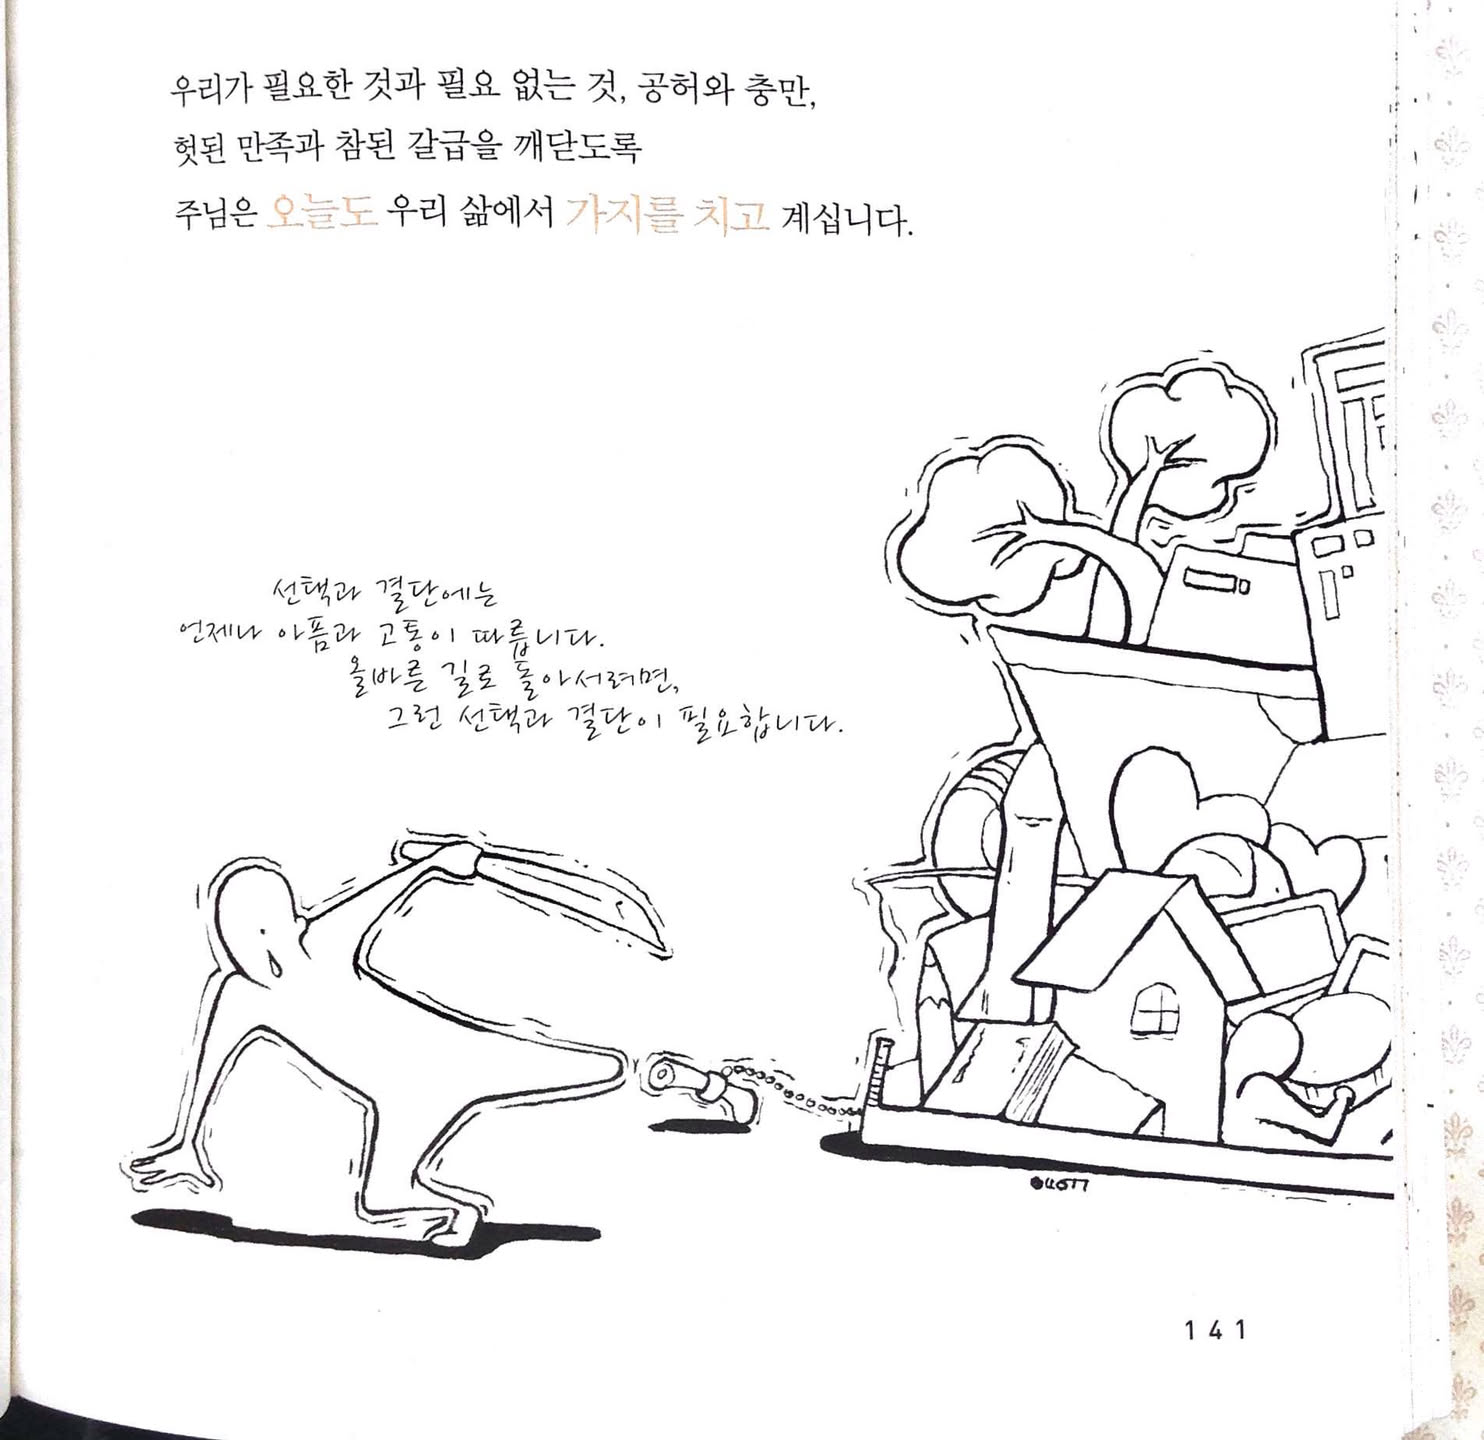 우리가 필요한 것과 필요 없는 것, 공허와 충만,
헛된 만족과 참된 갈급을 깨닫도록
주님은 오늘도 우리 삶에서 가지를 치고 계십니다.
선택과 결단에는
언제나 아픔과 고통이 따릅니다.
올바른 길로 돌아서려면,
그런 선택과 결단이 필요합니다.
141